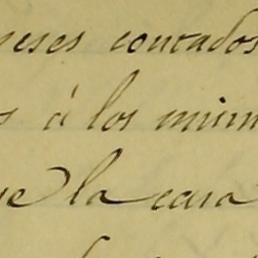 meses contados
s á los mism
ue la casa